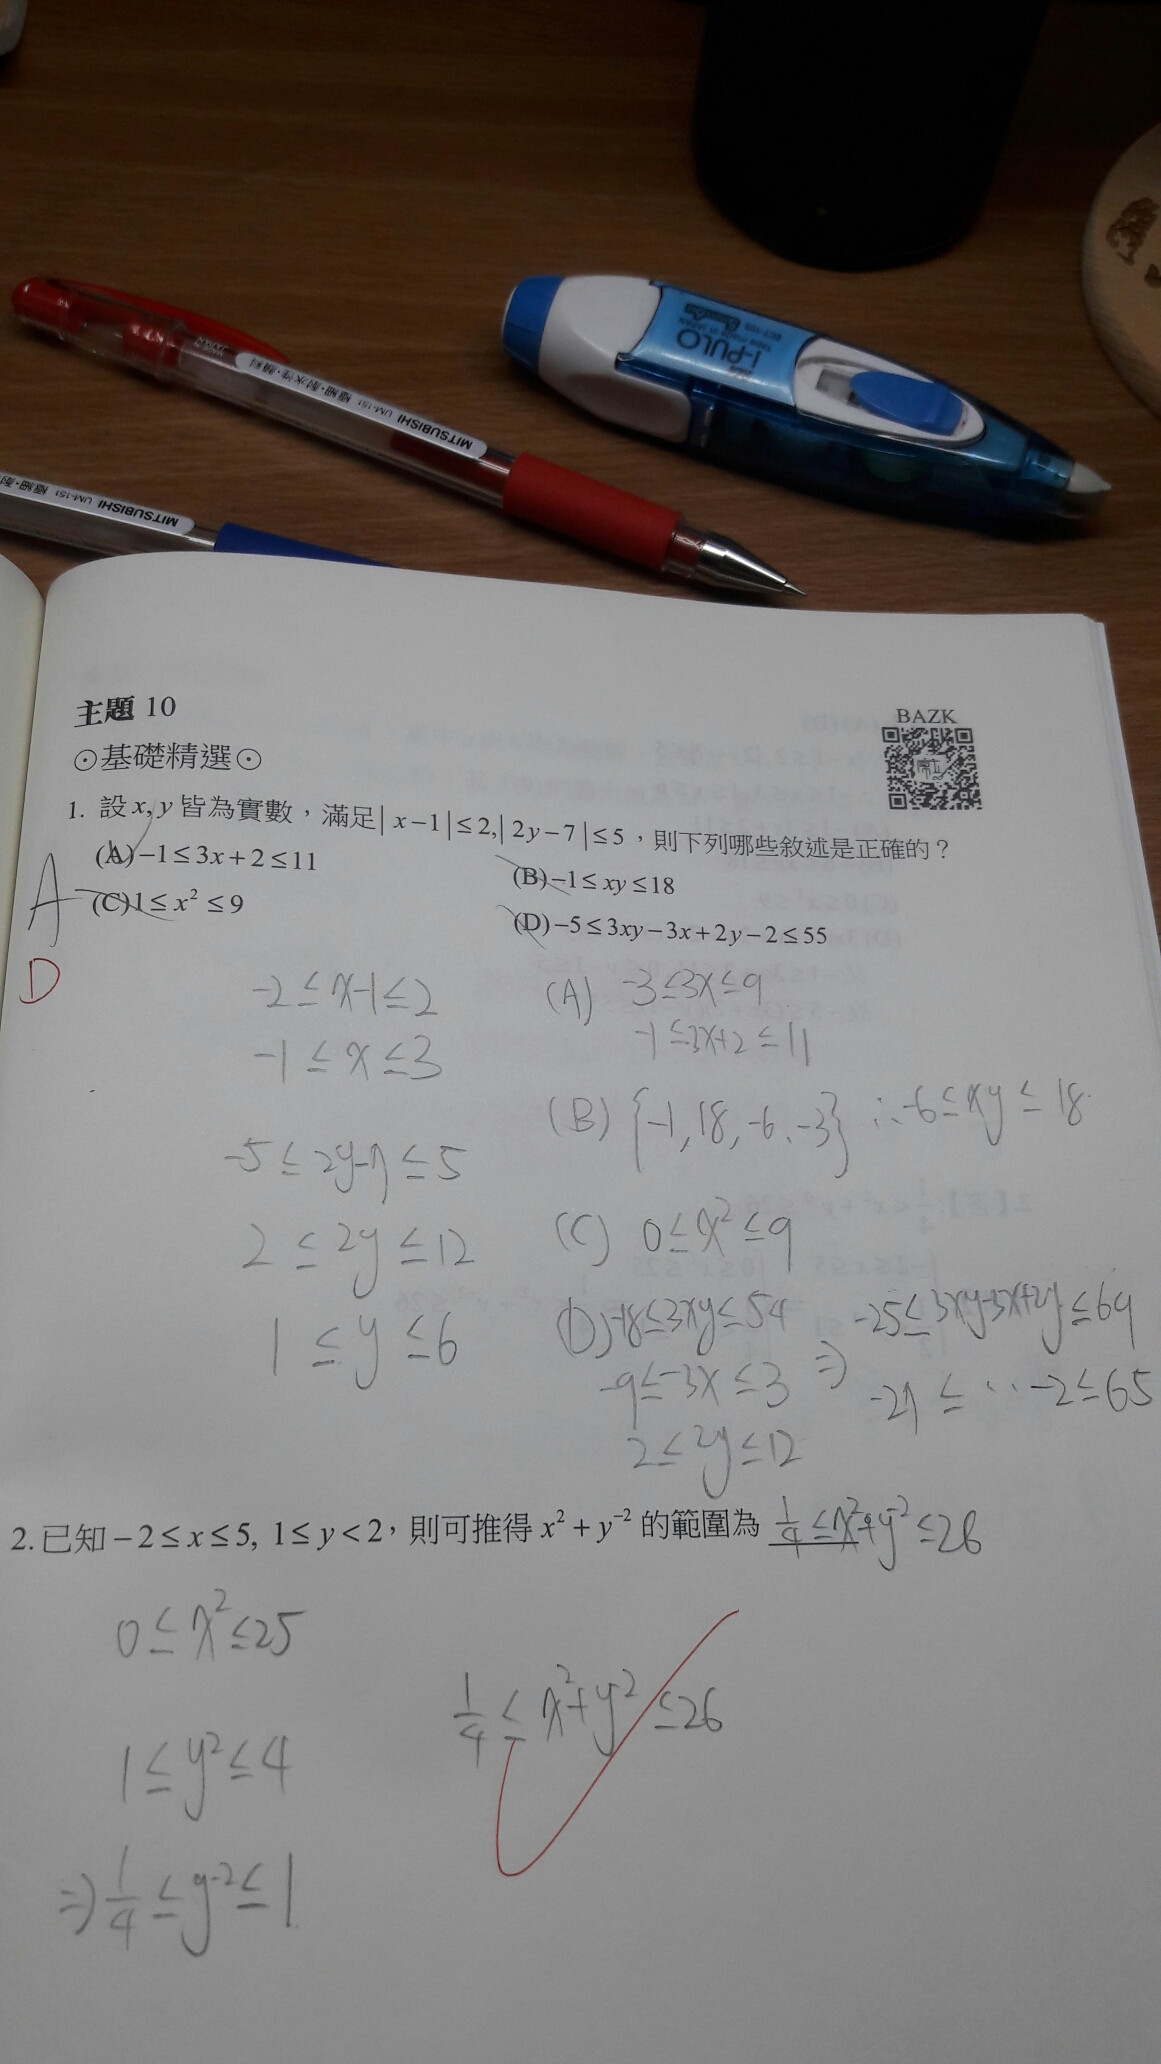 I-PULO
MITSUBISHI UM-151 極細・耐水性・顔料
MITSUBISHI UM-151
主題 10
⊙基礎精選⊙
BAZK
1. 設x,y皆為實數，滿足|x−1|≤2,|2y−7|≤5，則下列哪些敘述是正確的？
(A)−1≤3x+2≤11
(B)−1≤xy≤18
(C)1≤x²≤9
(D)−5≤3xy−3x+2y−2≤55
A
D
-2≤x-1≤2
-1≤x≤3
-5≤2y-7≤5
2≤2y≤12
1≤y≤6
(A) -3≤3x≤9
-1≤3x+2≤11
(B) {-1, 18, -6, -3} ∴ -6≤xy≤18
(C) 0≤x²≤9
(D) -18≤3xy≤54
-9≤-3x≤3
2≤2y≤12
⇒ -25≤3xy-3x+2y≤69
-27≤ … -2≤65
2. 已知−2≤x≤5, 1≤y<2，則可推得x²+y⁻²的範圍為 1/4≤x²+y⁻²≤26
0≤x²≤25
1≤y²≤4
⇒ 1/4≤y⁻²≤1
1/4≤x²+y²≤26